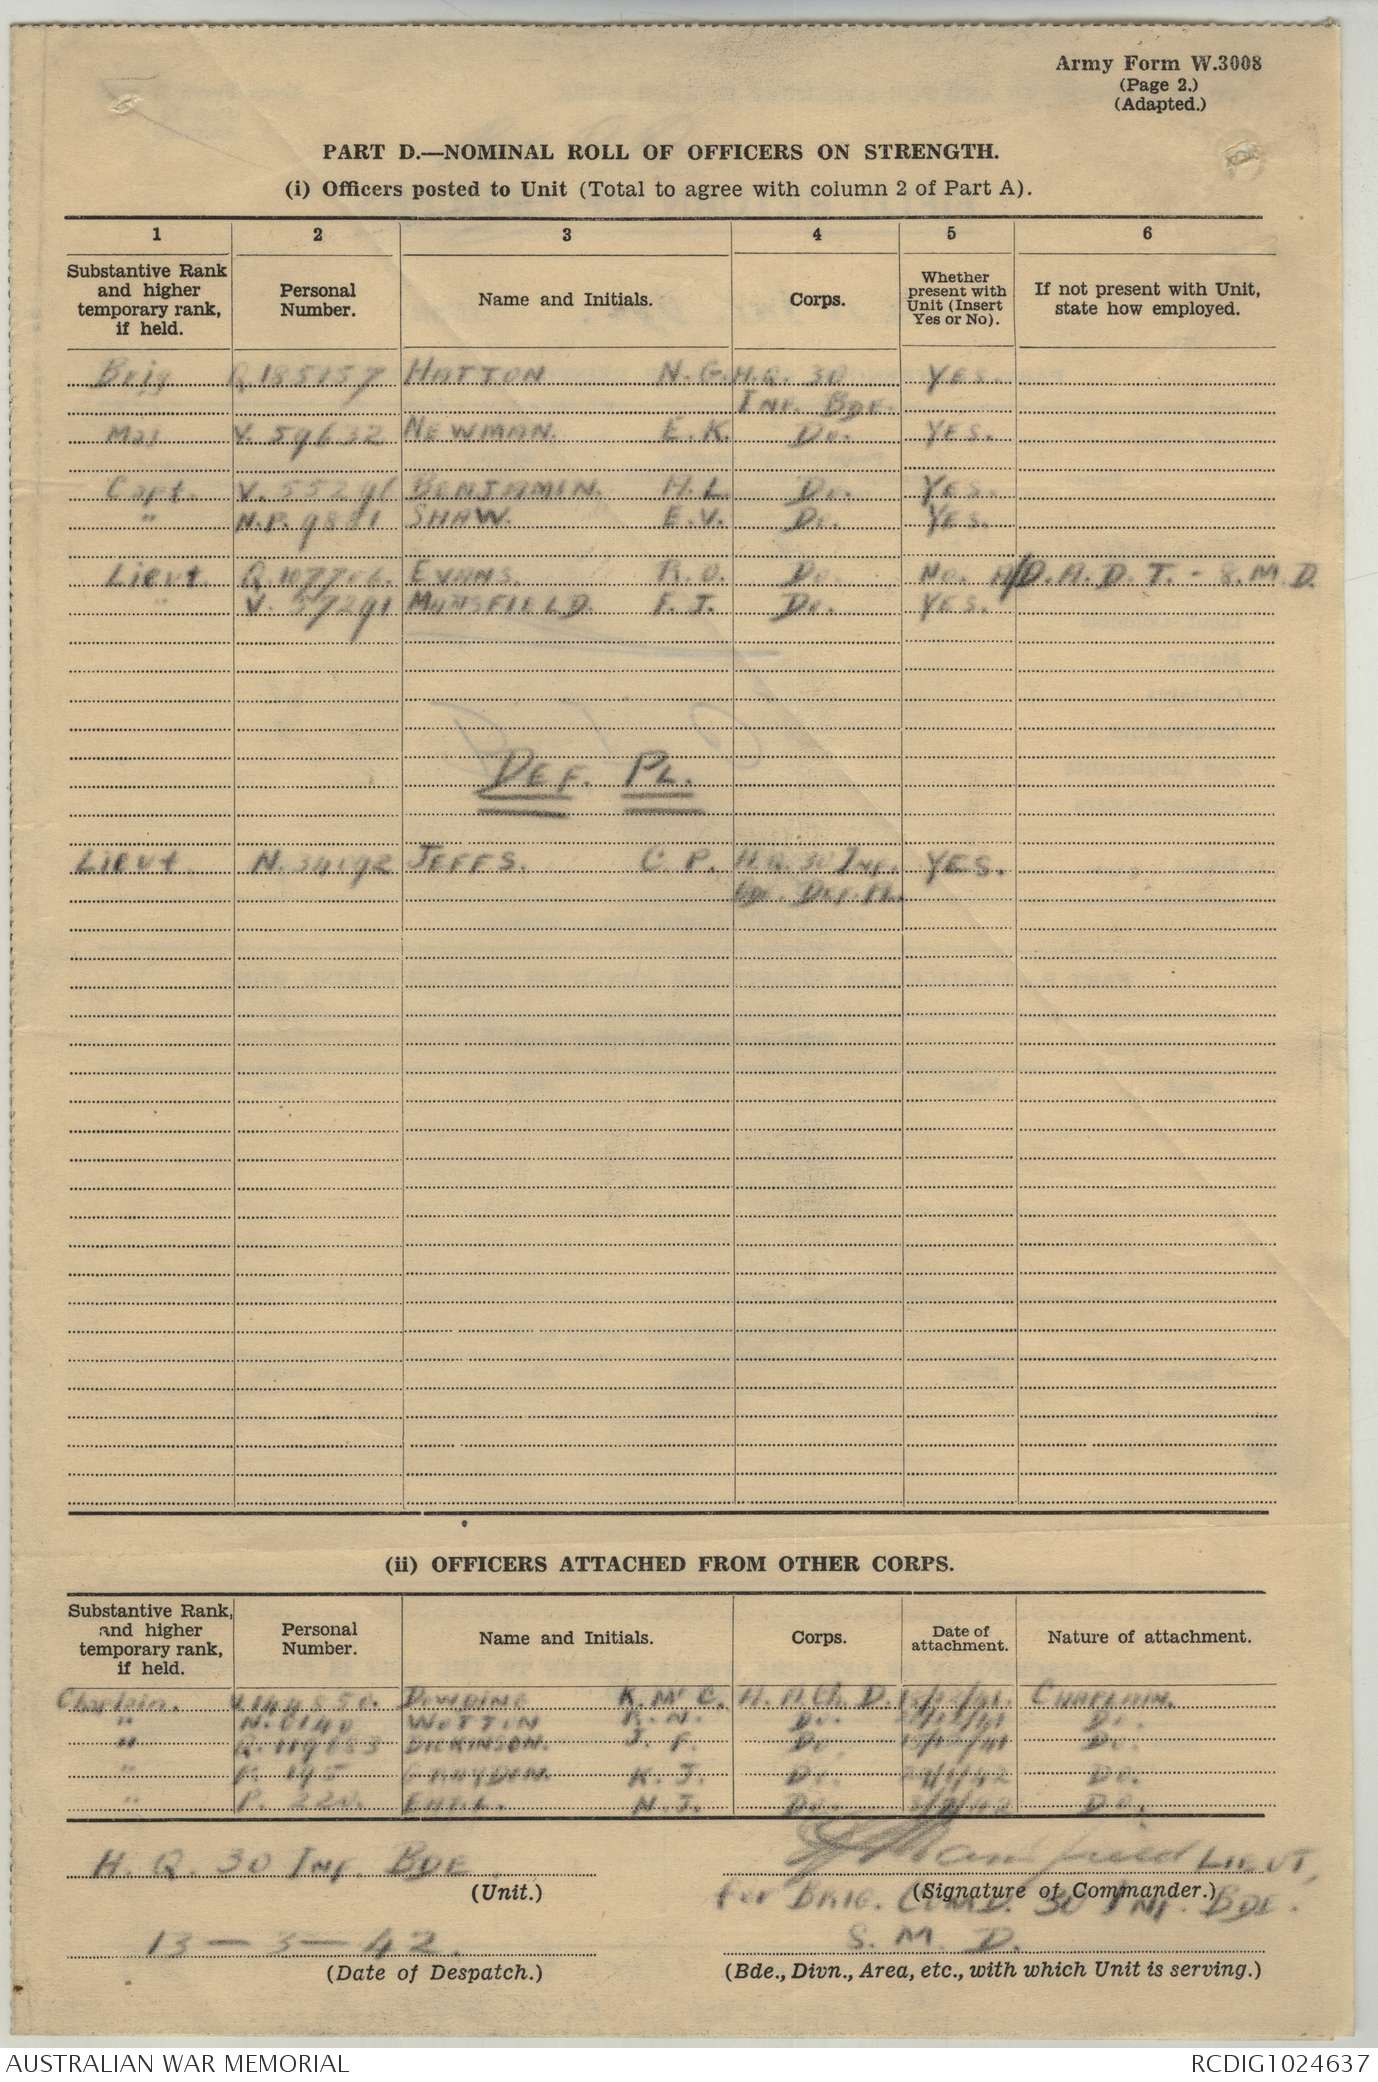 Army Form W.3008
(Page 2.)
(Adapted.)
PART D.—NOMINAL ROLL OF OFFICERS ON STRENGTH.
(i) Officers posted to Unit (Total to agree with column 2 of Part A).
1 2 3 4 5 6
Substantive Rank and higher temporary rank, if held.
Personal Number.
Name and Initials.
Corps.
Whether present with Unit (Insert Yes or No).
If not present with Unit, state how employed.
Brig Q.185157 HATTON N.G. H.Q. 30 YES.
INF. BDE.
Maj V.59632 NEWMAN. E.K. Do. YES.
Capt. V.55291 BENJAMIN. H.L. Do. YES.
" N.P.9881 SHAW. E.V. Do. YES.
Lieut EVANS. R.O. Do. No. A/D.A.D.T. - 8.M.D.
" V.57291 MANSFIELD. F.J. Do. YES.
DEF. PL.
Lieut N.34192 JEFFS. C.P. H.Q. 30 INF. YES.
BDE. DEF. PL.
(ii) OFFICERS ATTACHED FROM OTHER CORPS.
Substantive Rank, and higher temporary rank, if held.
Personal Number.
Name and Initials.
Corps.
Date of attachment.
Nature of attachment.
Chaplain. DOWDING K. McC. CHAPLAIN.
" WOTTON R.N. Do. Do.
" DICKINSON. J. F. Do. Do.
" K. J. Do. Do.
" P. N.J. Do. Do.
H.Q. 30 INF. BDE
(Unit.)
Mansfield LIEUT,
(Signature of Commander.)
for BRIG. COMD. 30 INF. BDE.
13-3-42.
(Date of Despatch.)
M. D.
(Bde., Divn., Area, etc., with which Unit is serving.)
AUSTRALIAN WAR MEMORIAL
RCDIG1024637